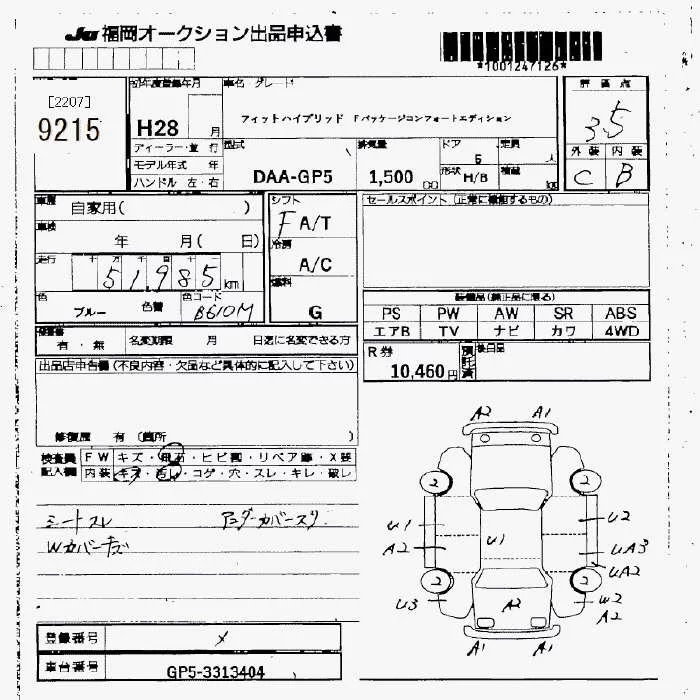 JU 福岡オークション出品申込書
*1001247126*
[2207]
9215
初年度登録年月
H28 月
ディーラー・並行
モデル年式 年
ハンドル 左・右
車名 グレード
フィットハイブリッド Fパッケージコンフォートエディション
型式
DAA-GP5
排気量
1,500 cc
ドア
5
形状 H/B
定員
人
積載
kg
評価点
3.5
外装 内装
C B
車歴 自家用( )
車検 年 月( 日)
走行 十 万 千 百 十 一
51985 km
色 ブルー 色替 色コード B610M
シフト
F A/T
冷房
A/C
燃料
G
セールスポイント (正常に機能するもの)
装備品(純正品に限る)
PS PW AW SR ABS
エアB TV ナビ カワ 4WD
保証書 有・無 名変期限 月 日迄に名変できる方
R券
10,460円
預託済
後日品
出品店申告欄(不良内容・欠品など具体的に記入して下さい)
修復歴 有(箇所 )
検査員 記入欄
FW キズ・飛石・ヒビ割・リペア跡・X要
内装 キズ・汚し・コゲ・穴・スレ・キレ・破レ
シートスレ アンダーカバースリ
Wカバーキズ
A2 A1
2 2
U1 U1 U2
A2 UA3
UA2
2 2
U3 A2 W2
A2
A1 A1
登録番号 ×
車台番号 GP5-3313404